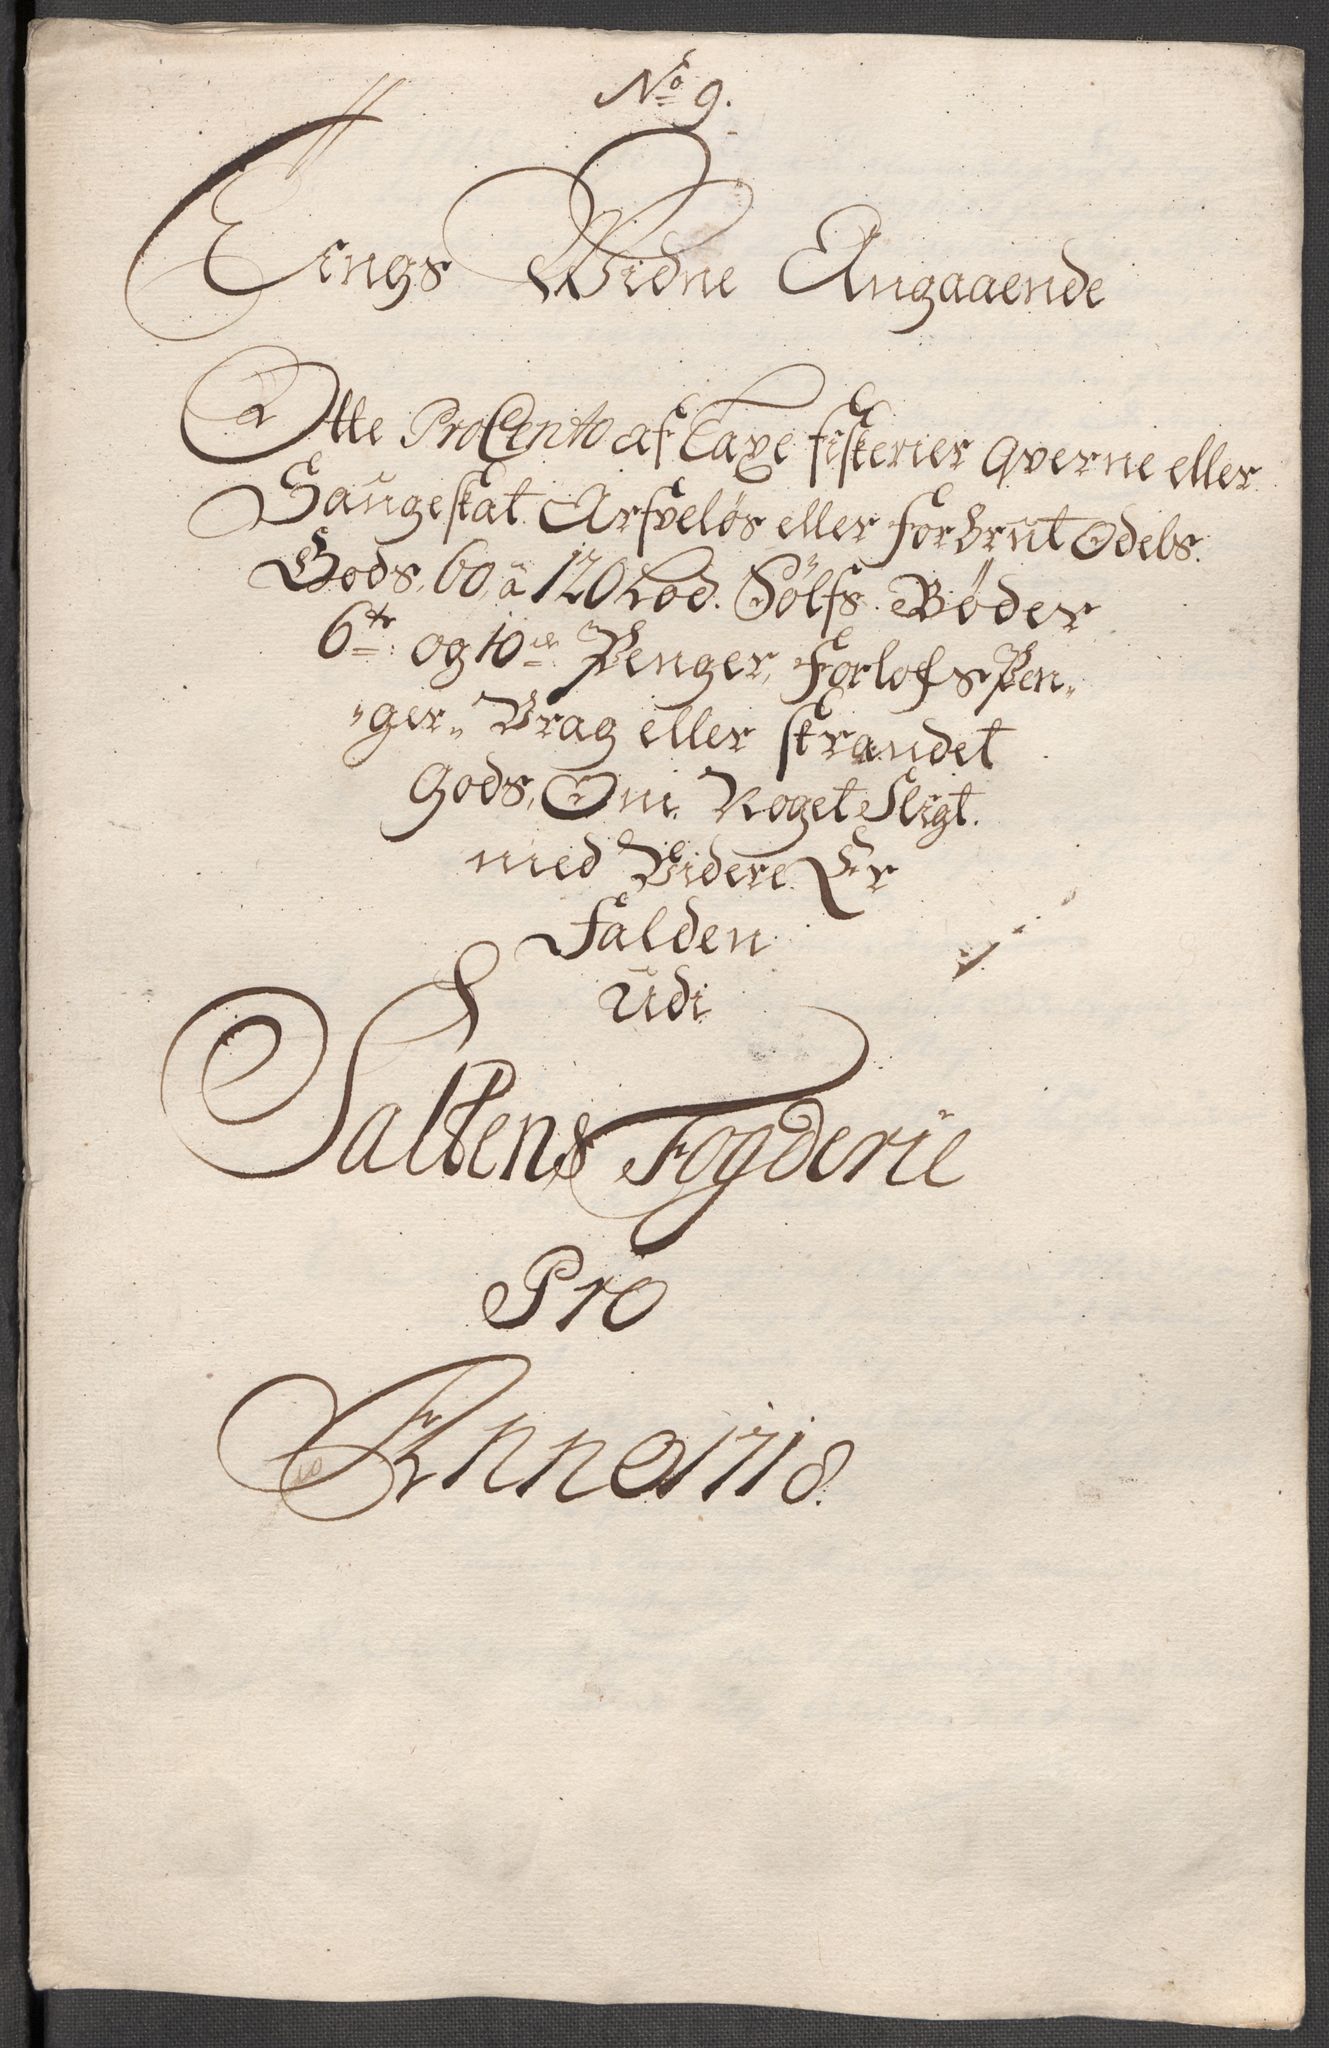 No 9.
Tings Widne Angaaende
Otte ProCento af Laxe fiskerier Qverne eller
Saugeskat. Arfveløs eller Forbrut Odels.
Gods, 60, â 120 Lod. Sölfs. Bøder
6te og 10de Penger, Forlofs Pen„
„ger„ Vrag eller strandet
Gods, Om. Noget Sligt.
med Videre. Er
Falden
Udi
Saltens Fogderie
Pro
Anno 1718.